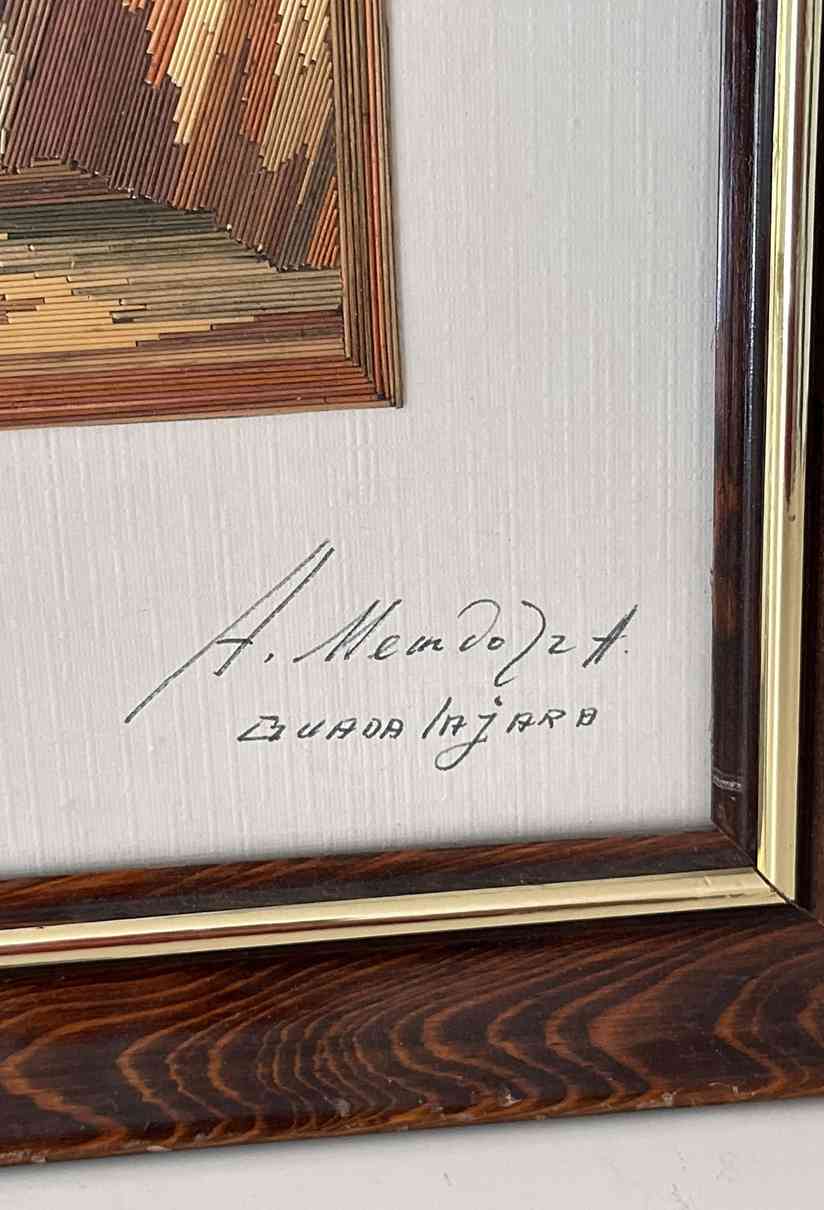 A. Mendoza.
GUADALAJARA